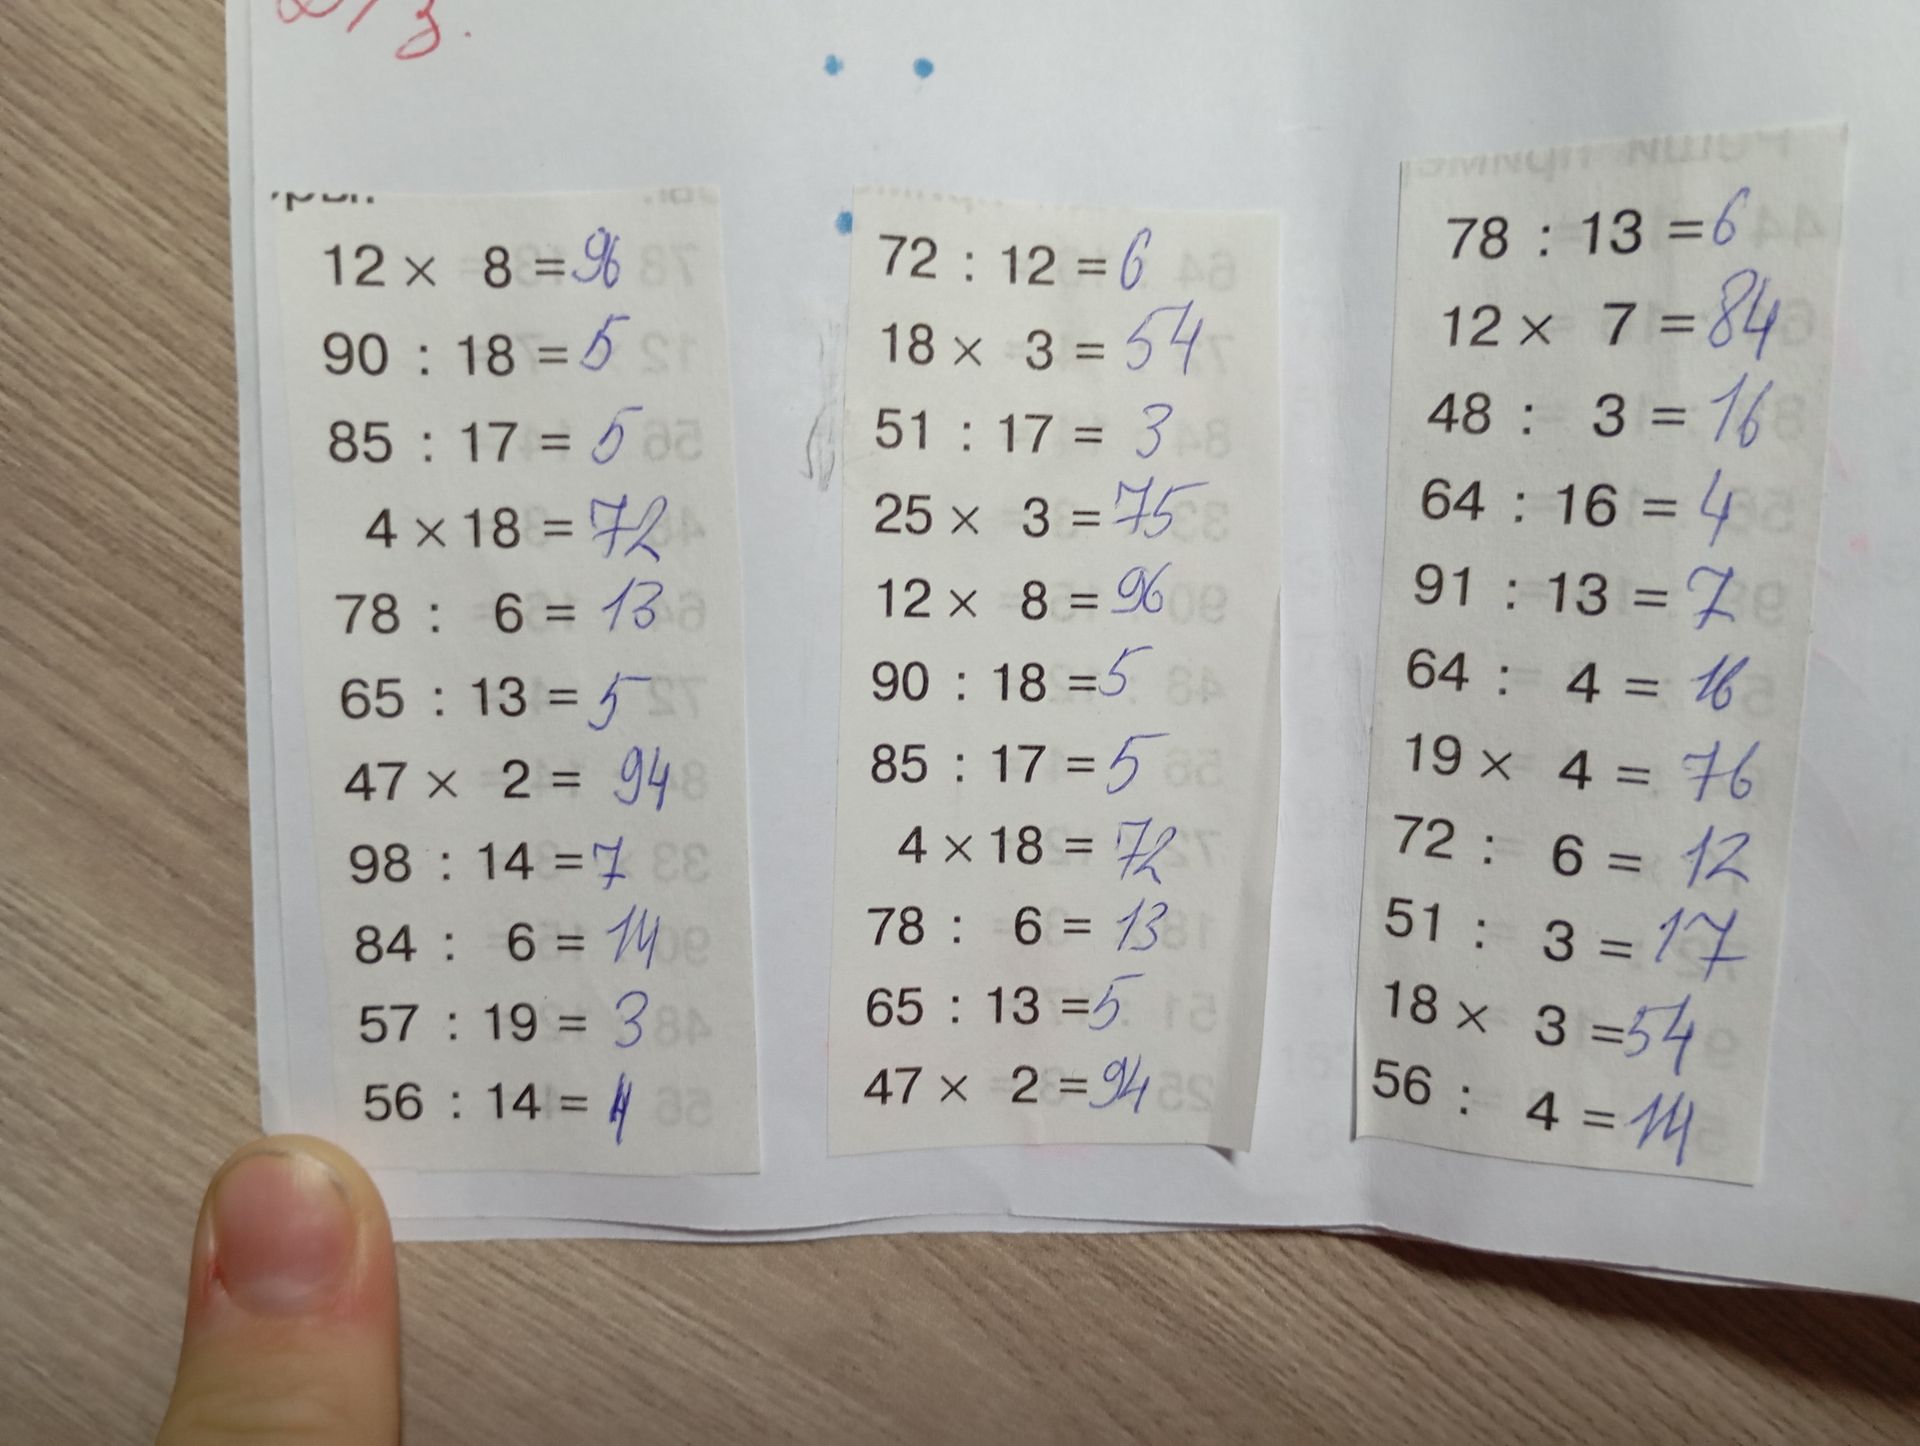 12 × 8 = 96
90 : 18 = 5
85 : 17 = 5
4 × 18 = 72
78 : 6 = 13
65 : 13 = 5
47 × 2 = 94
98 : 14 = 7
84 : 6 = 14
57 : 19 = 3
56 : 14 = 4
72 : 12 = 6
18 × 3 = 54
51 : 17 = 3
25 × 3 = 75
12 × 8 = 96
90 : 18 = 5
85 : 17 = 5
4 × 18 = 72
78 : 6 = 13
65 : 13 = 5
47 × 2 = 94
78 : 13 = 6
12 × 7 = 84
48 : 3 = 16
64 : 16 = 4
91 : 13 = 7
64 : 4 = 16
19 × 4 = 76
72 : 6 = 12
51 : 3 = 17
18 × 3 = 54
56 : 4 = 14